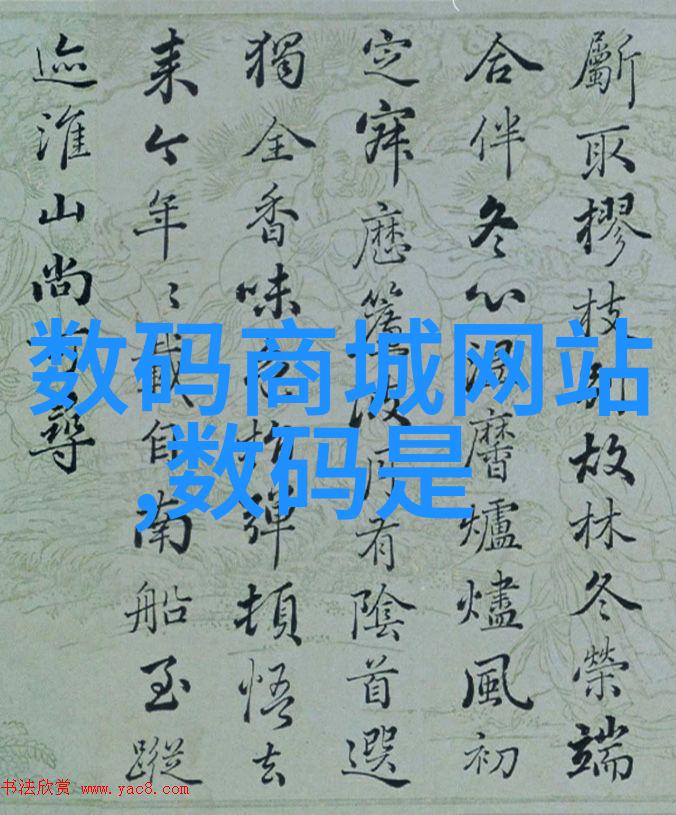 斸取樛枝別故林冬榮端
合伴冬心黁爐燼風初
定歷月有陰首選
獨全香味彈頓悟去
来今年〻載自南船至蹤
迹淮山尚可尋
数码商城网站
,数码是
书法欣赏 www.yac8.com